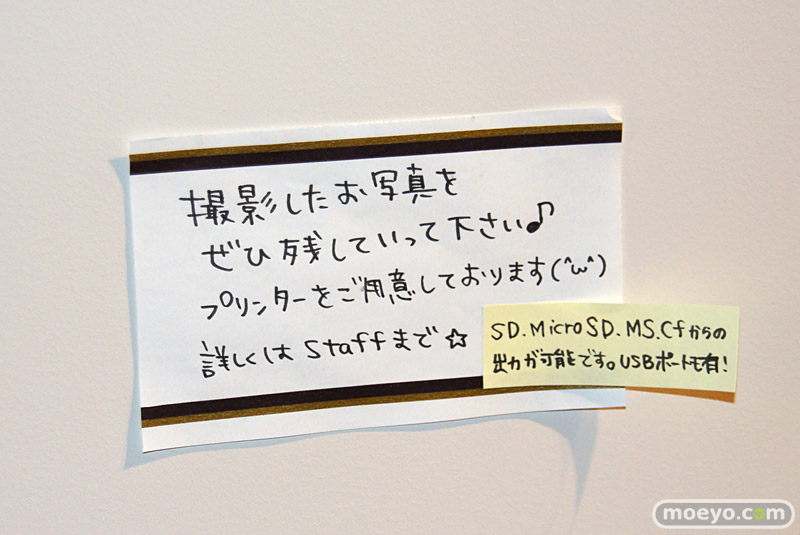 撮影したお写真を
ぜひ残していって下さい♪
プリンターをご用意しております(^ω^)
詳しくはstaffまで☆
SD.MicroSD.MS.Cfからの
出力が可能です。USBポートも有!
moeyo.com